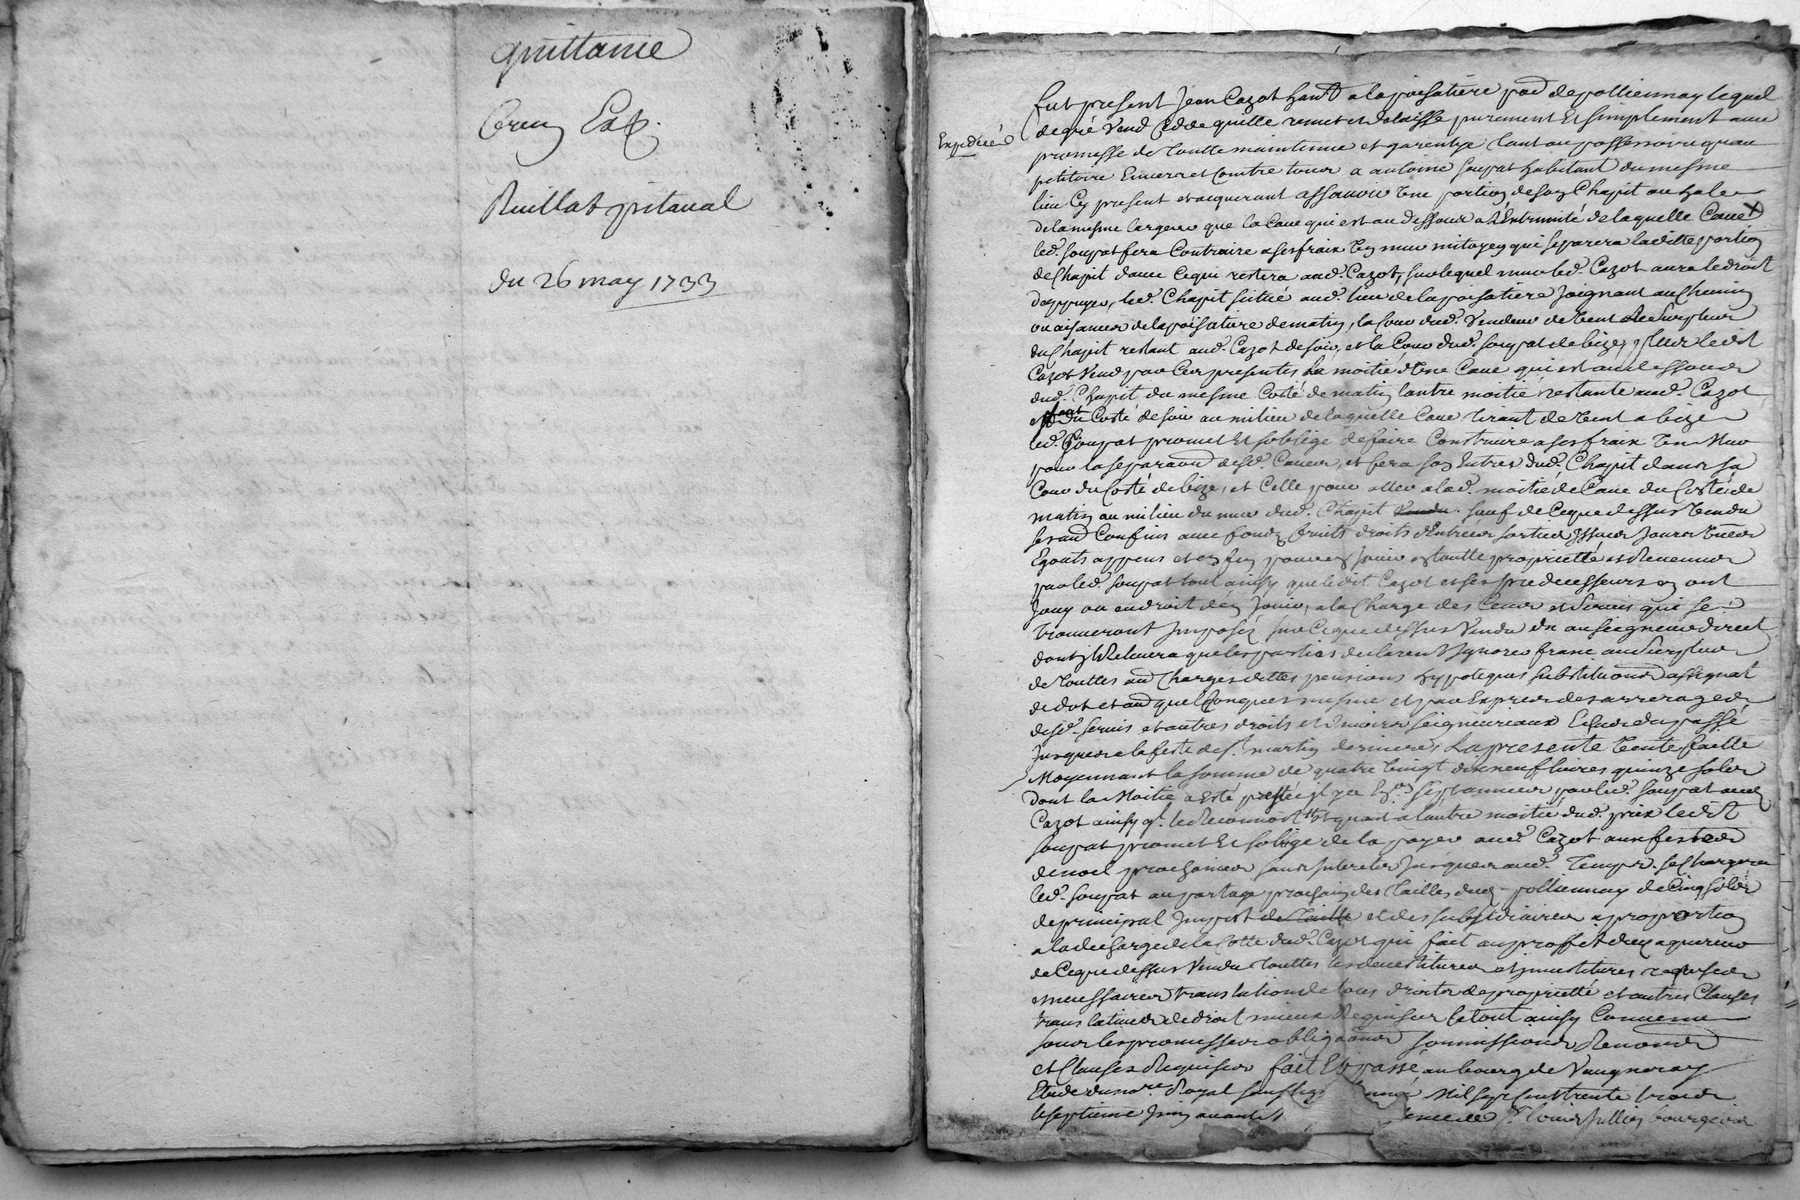 quittance
Ruillat pitaval
du 26 may 1733
Expediée
fut present Jean Cazot habt a la poisatiere parr de pollienay lequel
de gré vend cedde quitte remet et delaisse purement et simplement avec
promesse de toutte maintenue et garentye tant au possessoire quau
petitoire envers et contre tous a antoine soupat habitant du mesme
lieu cy present et acquerant assavoir une portion de son Chapit ou hale
de la mesme largeur que la cave qui est au dessous a l'Extremité de laquelle cave
led. soupat fera Contruire a ses fraix un mur mitoyen qui separera laditte portion
de Chapit davec ce qui restera aud. Cazot, sur lequel mur led. Cazot aura le droit
dappuyer, led. Chapit scitué aud. lieu de la poisatiere joignant au Chemin
ou aisances de la poisatiere de matin, la cour dud. Vendeur de vent le surplus
du Chapit restant aud. Cazot de soir, et la Cour dud. soupat de bize, plus ledit
Cazot vend par ces presentes la moitié d'une Cave qui est au dessous
dud. Chapit du mesme costé de matin lautre moitié restante aud. Cazot
du Costé de soir au milieu de laquelle Cave tirant de vent a bize
led. soupat promet et soblige de faire Construire a ses fraix un mur
pour la separaon desd. caves, et fera son entrée dud. Chapit dans sa
Cour du Costé de bize, et Celle pour aller a lad. moitié de Cave du Costé de
matin au milieu du mur dud. Chapit vendu sauf de ce que dessus vendu
ses aud Confins avec fondz fruits droits d'Entrées sorties issues jours vues
Egouts appens et en fin pour en jouir en toutte proprietté et Revenus
par led. soupat tout ainsy que ledit Cazot et ses predecesseurs en ont
jouy ou eu droit d'en jouir, a la Charge des Cens et servis qui se
trouveront imposez sur ce que dessus vendu du au seigneur direct
dont il Relevera que les parties declarent ignorer franc au surplus
de touttes aud Charges dettes pensions hypoteques substitutions assignat
de dot et aud quelconques mesme et par exprez des arrerages
desd. servis et autres droits et devoirs seigneuriaux Echus du passé
jusques a la feste de st. martin derniere La presente vente faitte
Moyennant la somme de quatre vingt dix neuf livres quinze sols
dont la Moitié a esté par led. soupat aud.
Cazot ainsy ql. le Reconnoit et quant a lautre moitié dud. prix ledit
soupat promet et soblige de la payer aud. Cazot aux festes
de noel prochaines sans interets jusques aud. temps. se chargera
led. soupat au partage prochain des tailles dud. pollienay de cinq sols
de principal impost de taille et des subsidiaires a proportion
a la decharge de la Cotte dud. Cazot qui fait au proffit dud. aquereur
de ce que dessus vendu touttes les devestitures et investitures requises
et necessaires translation de tous droits de proprietté et autres Clauses
translatives de droit mieux Requises le tout ainsy Convenu
sous les promesses obligaons soumissions Renons
et Clauses Requises fait et passé au bourg de Vaugneray
Etude du nore. Royal soussigné Mil sept cent trente trois
le septieme juin avant sr. Louis Jullien bourgeois